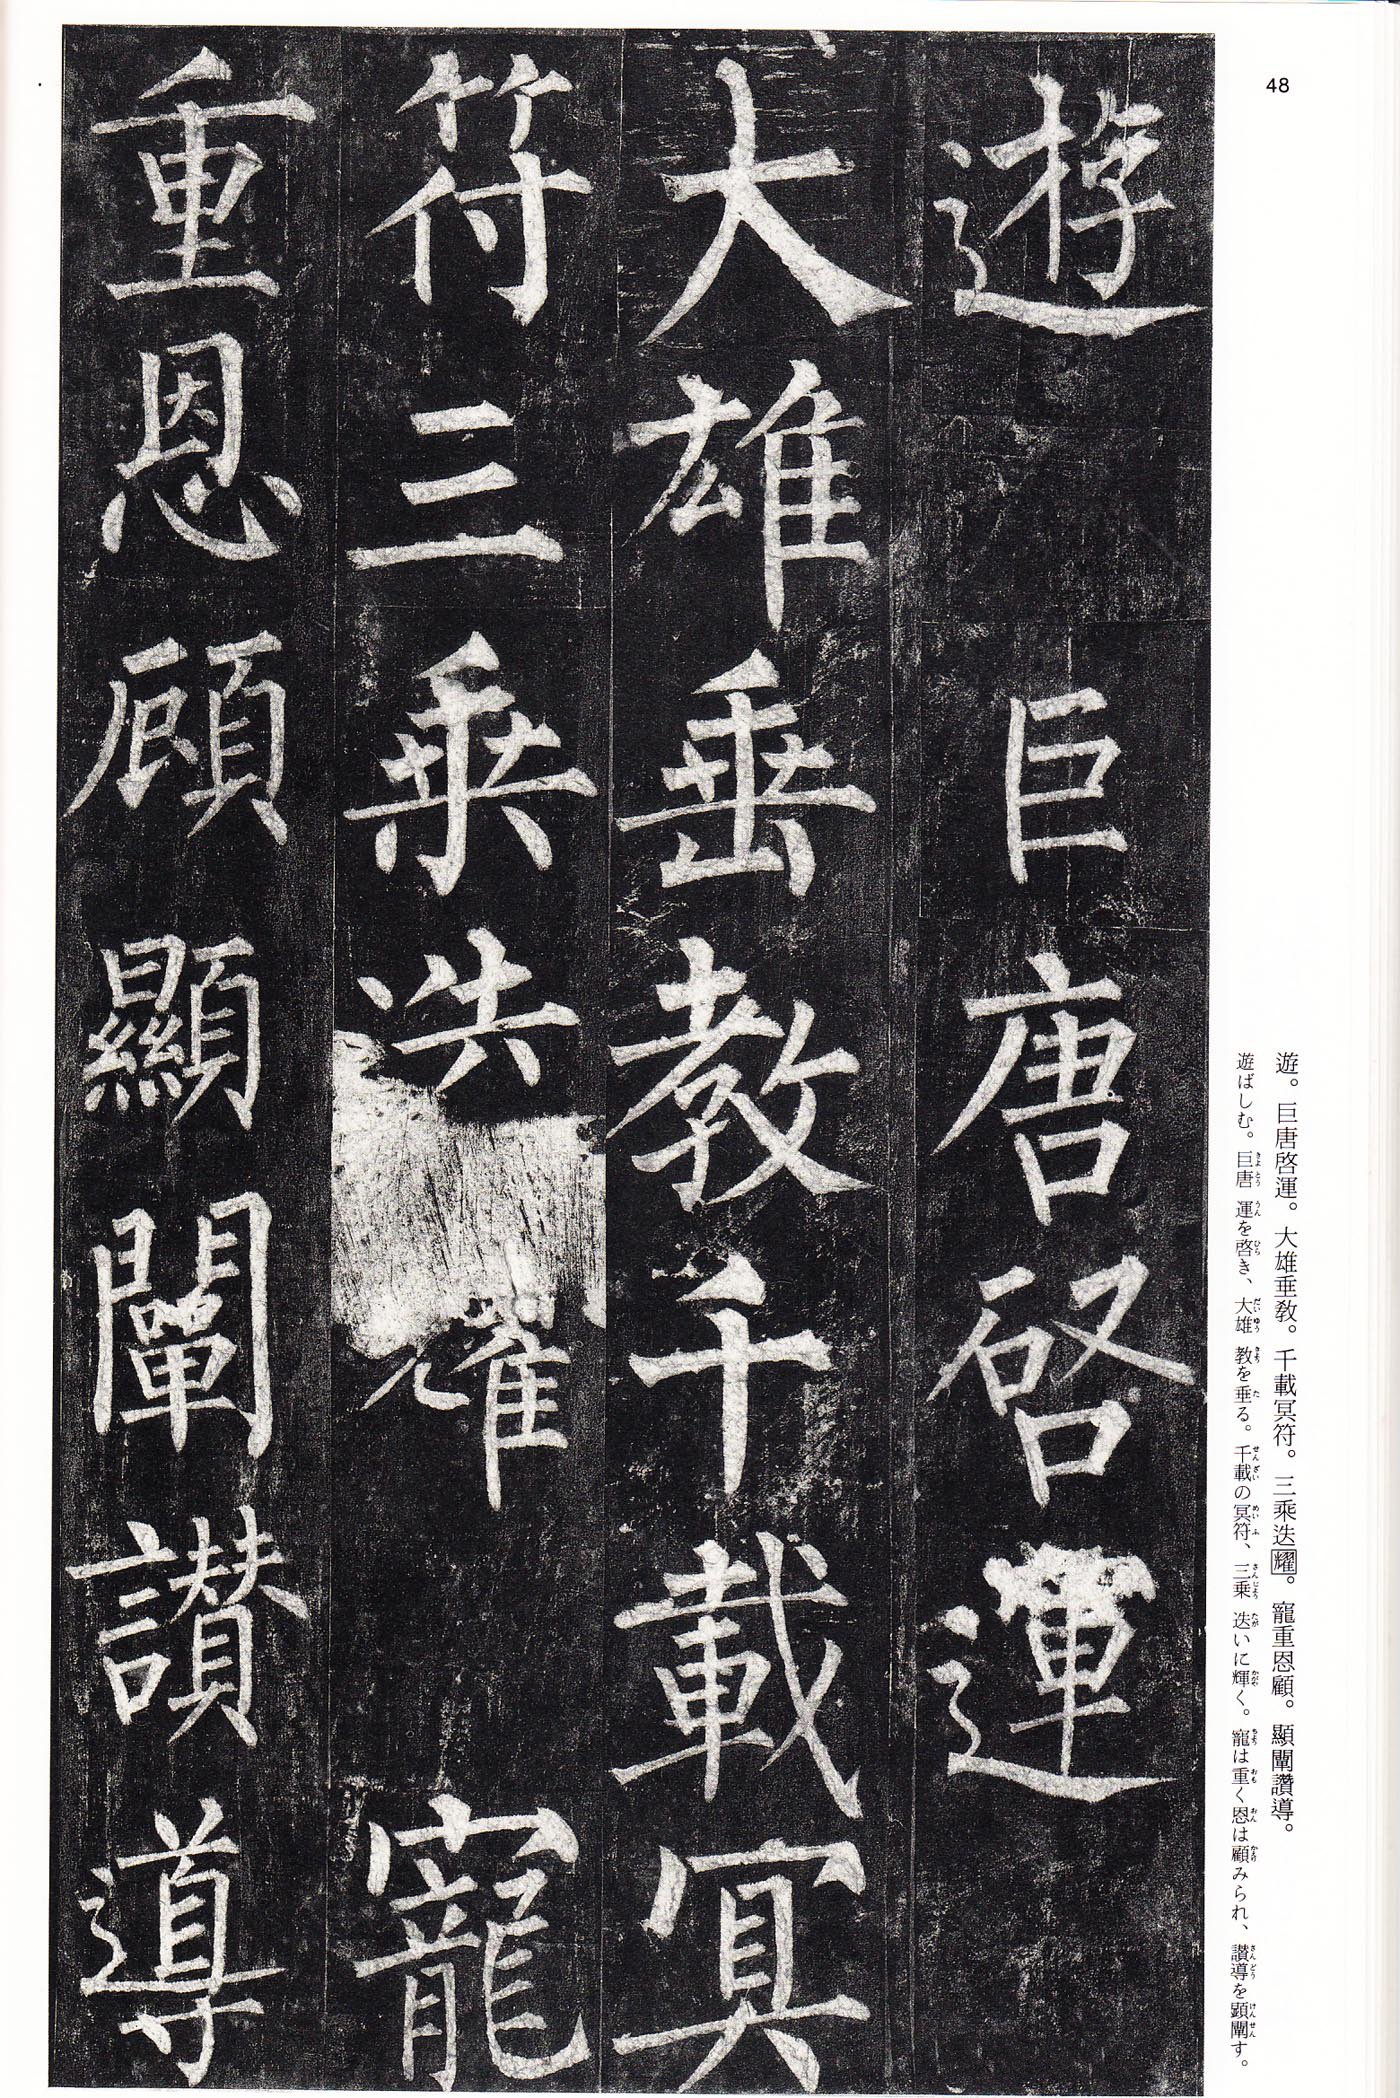 48
遊。巨唐啓運。大雄垂教。千載冥符。三乘迭耀。寵重恩顧。顯闡讚導。
遊ばしむ。巨唐 運を啓き、大雄 教を垂る。千載の冥符、三乗 迭いに輝く。寵は重く恩は顧みられ、讚導を顕闡す。
遊 巨唐啓運
大雄垂教千載冥
符三乘迭耀 寵
重恩顧顯闡讚導